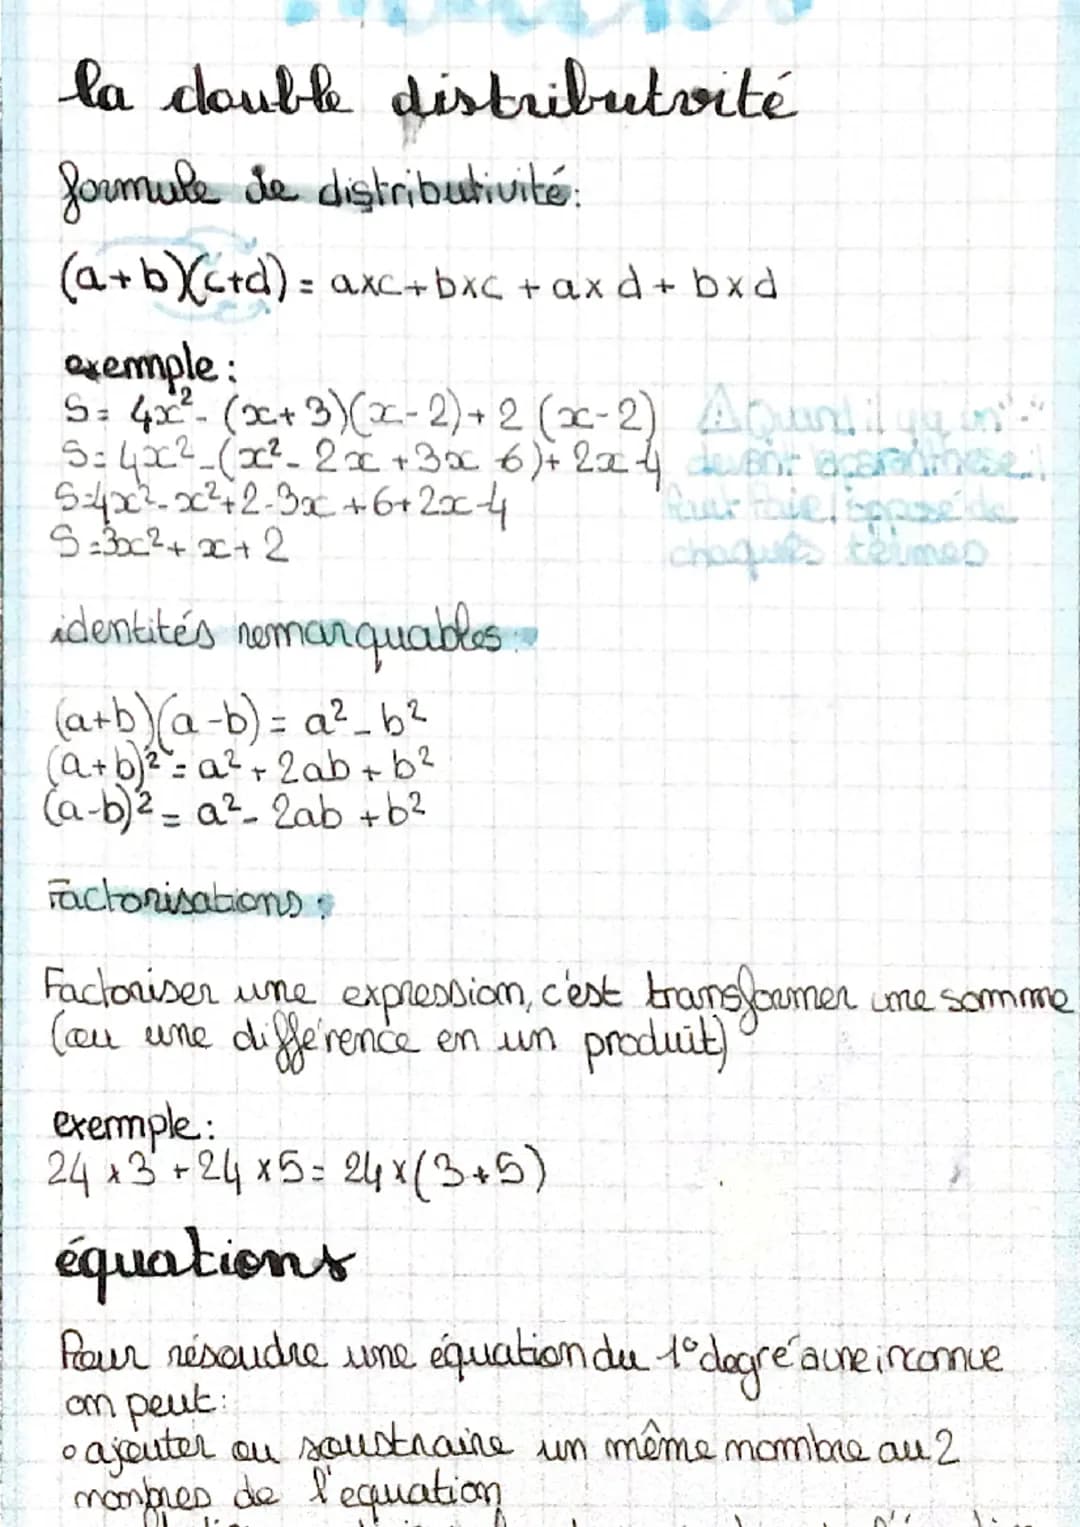 la double distributvité
formule de distributivité:
(a+b)(c+d) = axc+bxc + ax d + bxd
exemple:
S= 4x²- (x+3)(x-2)+2 (x-2)
S=4x²-(x²-2x+3x-6)+2x-4
S=4x²-x²+2-3x+6+2x-4
S=3x²+x+2
⚠ Quand il y a un "-"
devant la parenthèse
faut faire l'opposé de
chaques termes
identités remarquables:
(a+b)(a-b) = a²-b²
(a+b)²=a²+2ab+b²
(a-b)²= a²-2ab+b²
Factorisations:
Factoriser une expression, c'est transformer une somme
(ou une différence en un produit)
exemple:
24 x3 +24 x5= 24x(3+5)
équations
Pour résoudre une équation du 1° degré a une inconnue
on peut:
• ajouter ou soustraire un même nombre au 2
membres de l'equation